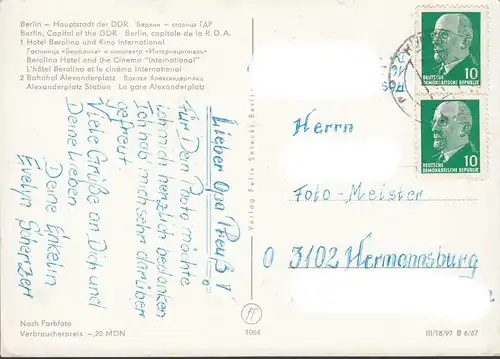 Berlin – Hauptstadt der DDR Берлин – столица ГДР
Berlin, Capital of the GDR · Berlin, capitale de la R.D.A.
1 Hotel Berolina und Kino International
Гостиница «Беролина» и кинотеатр «Интернациональ»
Berolina Hotel and the Cinema "International"
L'hôtel Berolina et le cinéma International
2 Bahnhof Alexanderplatz Вокзал Александерплац
Alexanderplatz Station La gare Alexanderplatz
Lieber Opa Preuß!
Für Dein Photo möchte
ich mich herzlich bedanken
Ich hab mich sehr darüber
gefreut.
Viele Grüße an Dich und
Deine Lieben.
Deine Enkelin
Evelyn Scherzer
Nach Farbfoto
Verbraucherpreis –,20 MDN
Verlag Felix Setecki Berlin
ff
1064
DEUTSCHE
DEMOKRATISCHE REPUBLIK
10
DEUTSCHE
DEMOKRATISCHE REPUBLIK
10
Herrn
Foto-Meister
3102 Hermannsburg
III/18/97 B 6/67